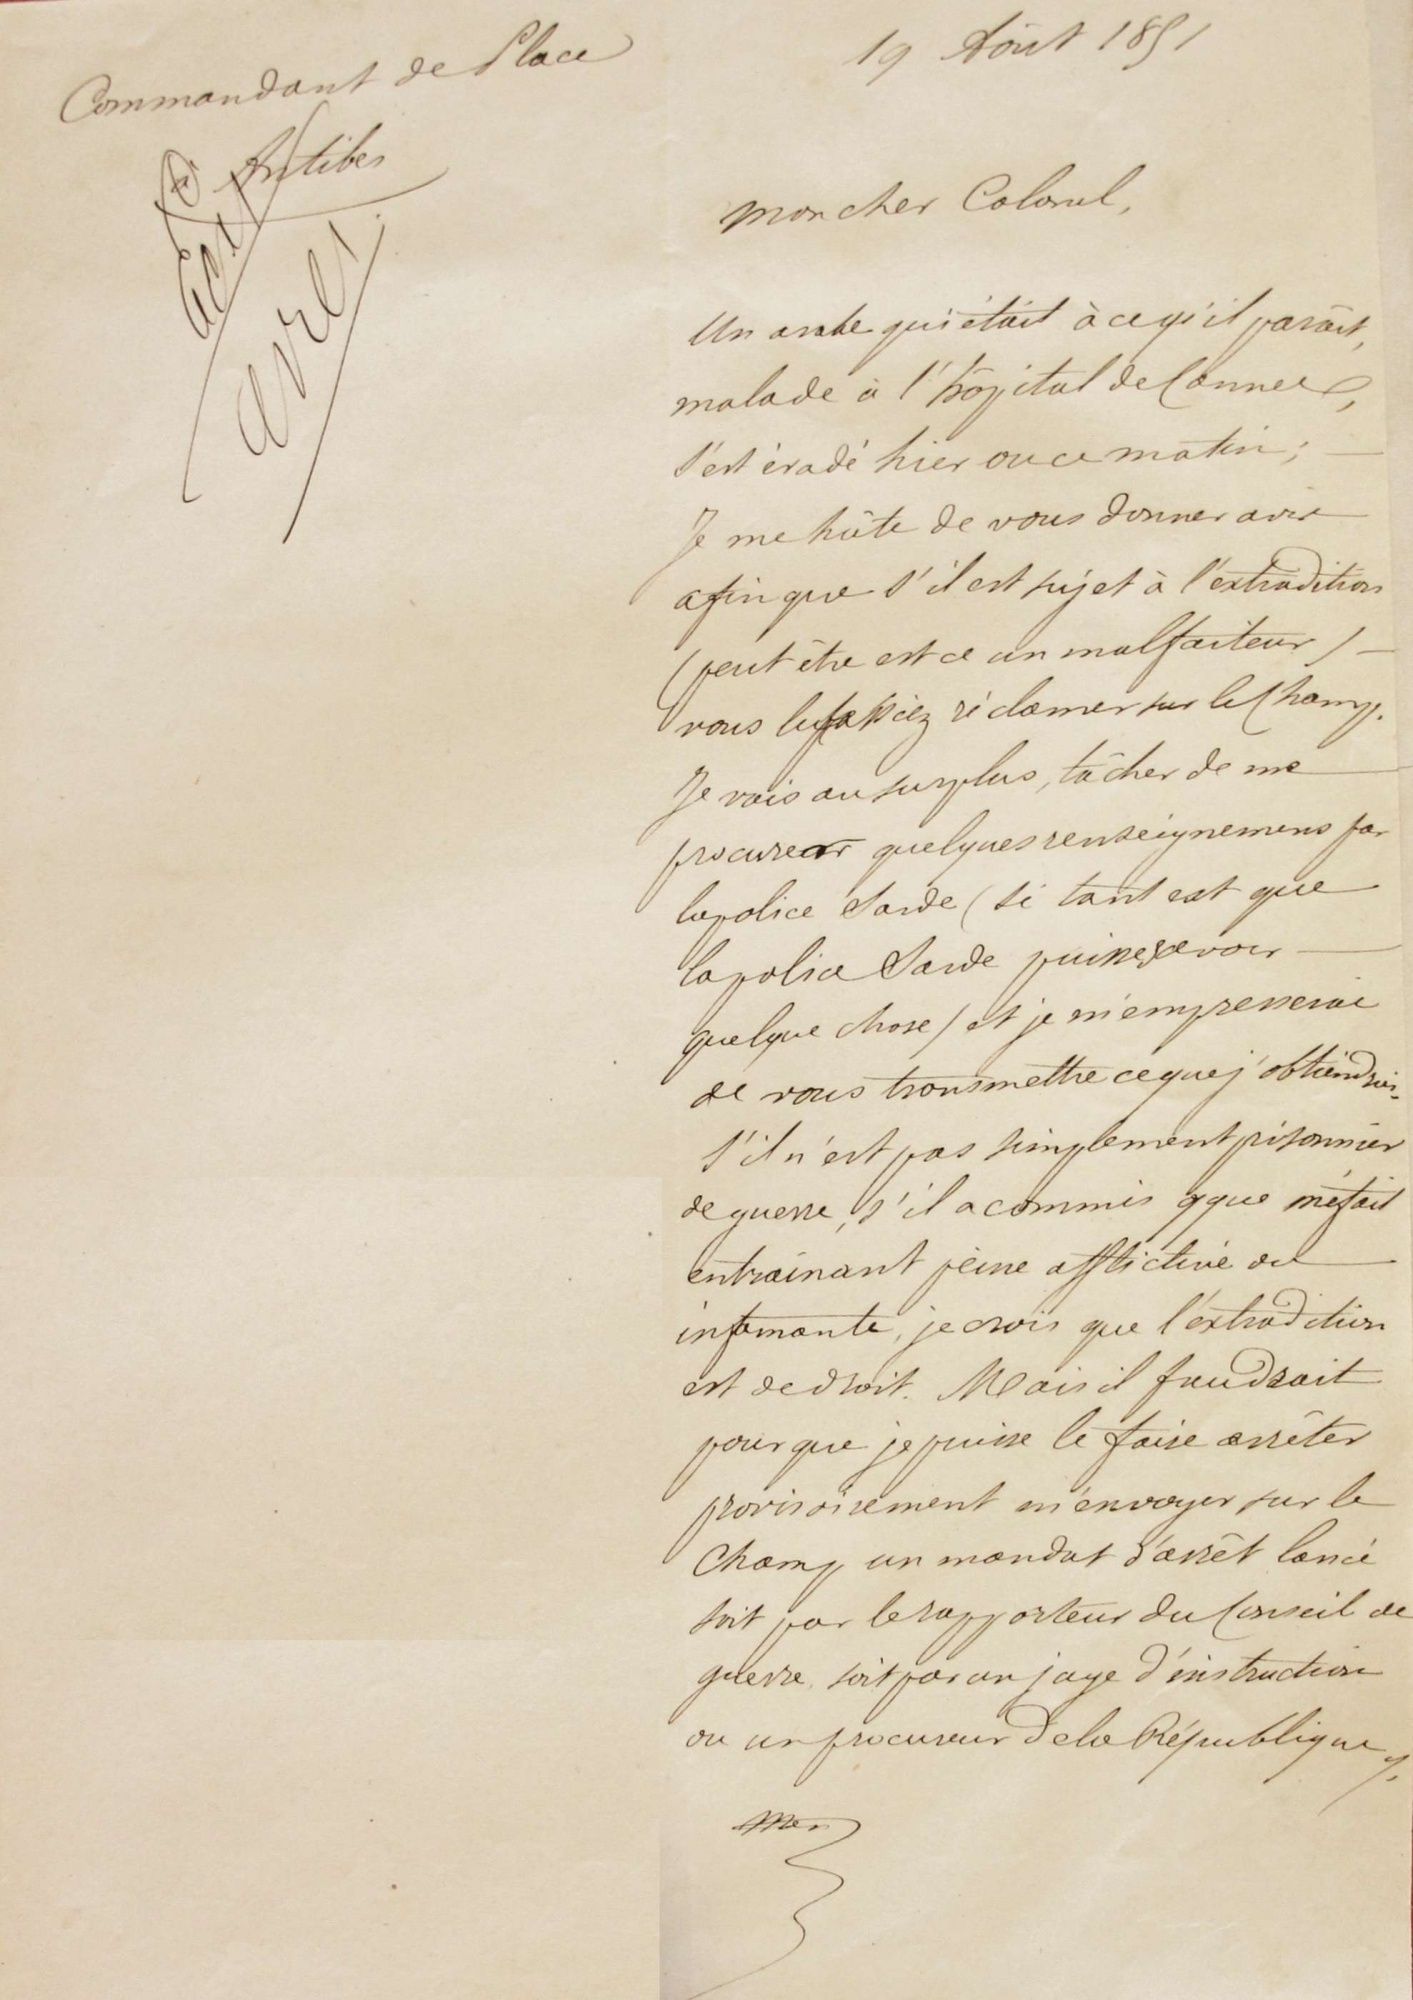 Commandant de Place
à Antibes
19 Août 1851
Mon cher Colonel,
Un arabe qui était à ce qu'il parait,
malade à l'hôpital de Cannes,
s'est évadé hier ou ce matin;
Je me hâte de vous donner avis
afin que s'il est sujet à l'extradition
(peut être est ce un malfaiteur) —
vous le fassiez réclamer sur le Champ.
Je vais au surplus, tâcher de me
procurer quelques renseignemens par
la police Sarde (si tant est que
la police Sarde puisse savoir —
quelque chose) et je m'empresserai
de vous transmettre ce que j'obtiendrai.
S'il n'est pas simplement prisonnier
de guerre, s'il a commis qque méfait
entrainant peine afflictive ou
infamante, je crois que l'extradition
est de droit. Mais il faudrait
pour que je puisse le faire arrêter
provisoirement m'envoyer sur le
Champ un mandat d'arrêt lancé
soit par le rapporteur du Conseil de
guerre, soit par un juge d'instruction
ou un procureur de la République.